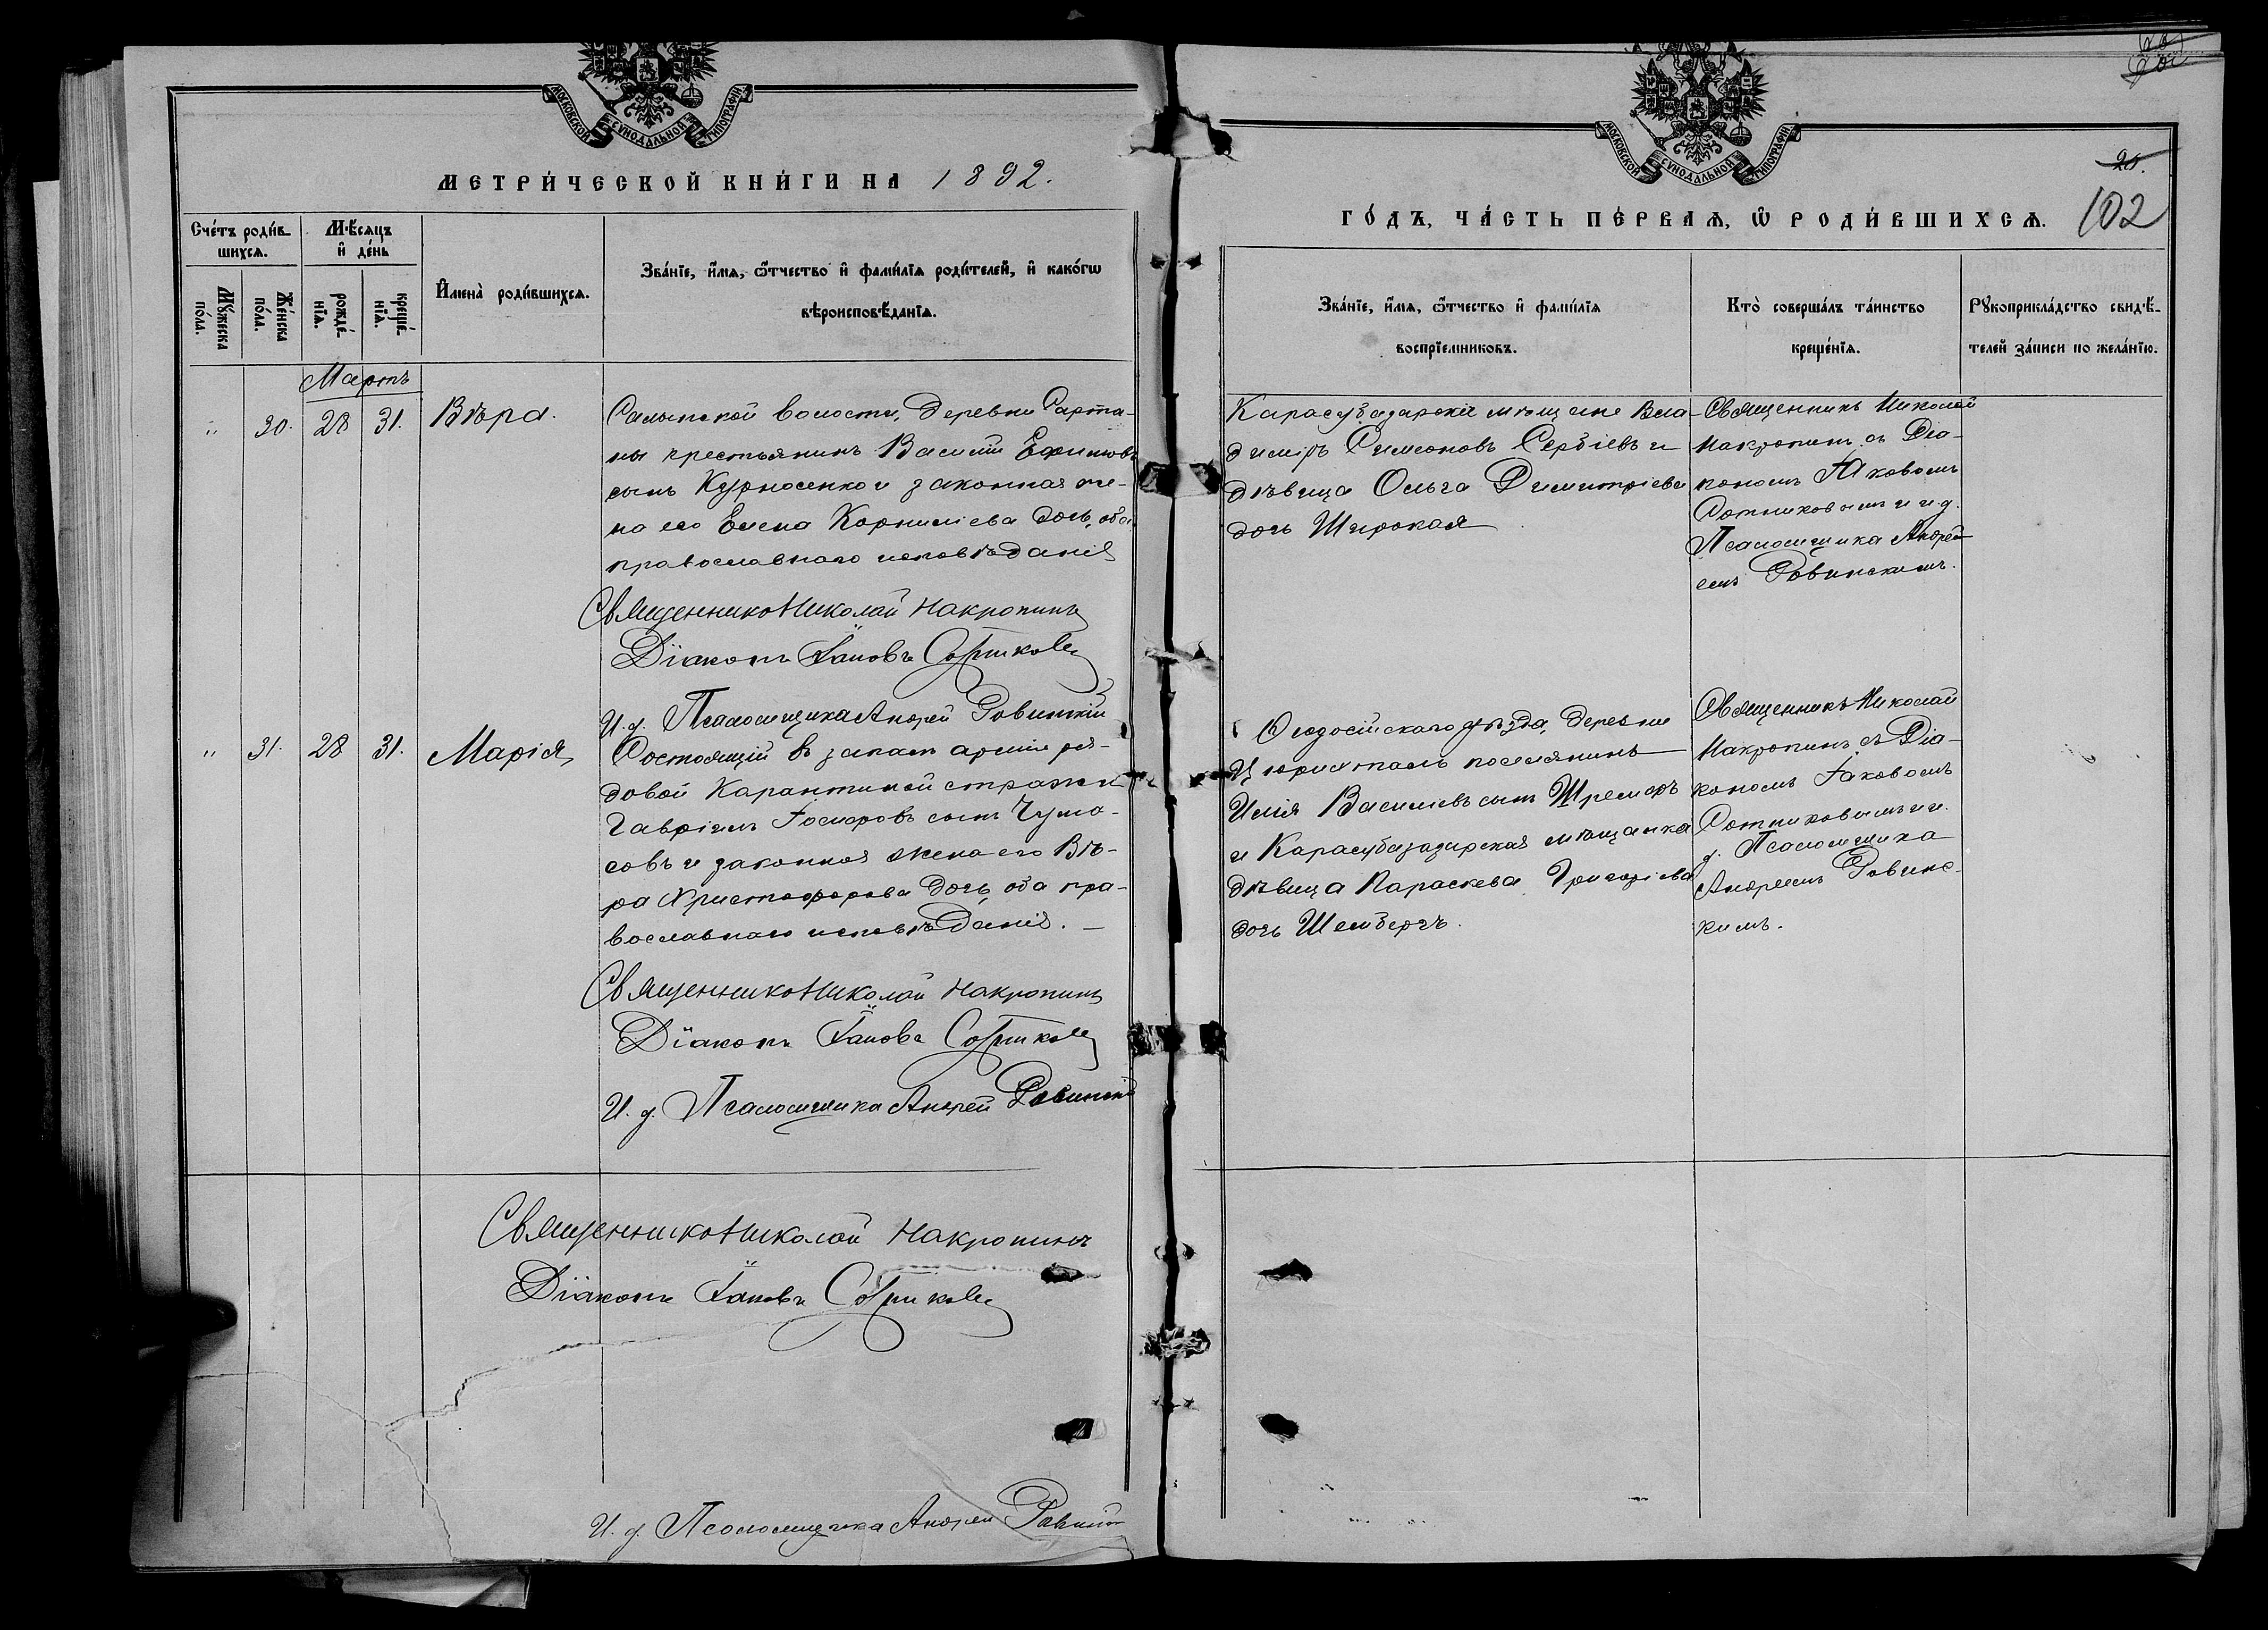 МОСКОВСКОЙ СУНОДАЛЬНОЙ ТИПОГРАФІИ
МЕТРИ́ЧЕСКОЙ КНИ́ГИ НА 1892.
Сче́тъ роди́в-
шихсѧ.
Мѣ́сѧцъ
и҆ де́нь
Мꙋ́жеска
по́ла.
Же́нска
по́ла.
рожде́-
нїѧ.
креще́-
нїѧ.
И҆мена̀ роди́вшихсѧ.
Зва́нїе, и҆́мѧ, ѻ҆́тчество и҆ фами́лїѧ роди́телей, и҆ како́гѡ
вѣроисповѣ́данїѧ.
Мартъ
" 30. 28 31. Вѣра.
волости, деревни Сарта-
ны крестьянинъ Василій Ефимовъ
сынъ Курносенко и законная же-
на его Елена Корниліева дочь, оба
православнаго исповѣданія
Священникъ Николай Накропинъ
Діаконъ Іаковъ Сотниковъ
И. д. Псаломщика Андрей Ровинскій
" 31. 28 31. Марія
Состоящій въ запасѣ арміи ря-
довой Карантинной стражи
Гавріилъ сынъ Чума-
совъ и законная жена его Вѣ-
ра Христофорова дочь, оба пра-
вославнаго исповѣданія. —
Священникъ Николай Накропинъ
Діаконъ Іаковъ Сотниковъ
И. д. Псаломщика Андрей Ровинскій
Священникъ Николай Накропинъ
Діаконъ Іаковъ Сотниковъ
И. д. Псаломщика Андрей Ровинскій
МОСКОВСКОЙ СУНОДАЛЬНОЙ ТИПОГРАФІИ
20.
ГО́ДЪ, ЧА́СТЬ ПЕ́РВАѦ, Ѡ҆ РОДИ́ВШИХСѦ. 102
Зва́нїе, и҆́мѧ, ѻ҆́тчество и҆ фами́лїѧ
воспрїе́мниковъ.
Кто̀ соверша́лъ та́инство
креще́нїѧ.
Рꙋкоприкла́дство свидѣ́-
телей за́писи по жела́нїю.
Карасубазарскіе мѣщане Вла-
диміръ Симеоновъ Сербіевъ и
дѣвица Ольга Димитріева
дочь Широкая
Священникъ Николай
Накропинъ съ Діа-
кономъ Іаковомъ
Сотниковымъ и и. д.
Псаломщика Андре-
емъ Ровинскимъ.
Ѳеодосійскаго уѣзда, деревни
Цюрихталь поселянинъ
Илія Василіевъ сынъ Шремеръ
и Карасубазарская мѣщанка
дѣвица Параскева Григоріева
дочь Шембергъ.
Священникъ Николай
Накропинъ съ Діа-
кономъ Іаковомъ
Сотниковымъ и и.
д. Псаломщика
Андреемъ Ровинс-
кимъ.